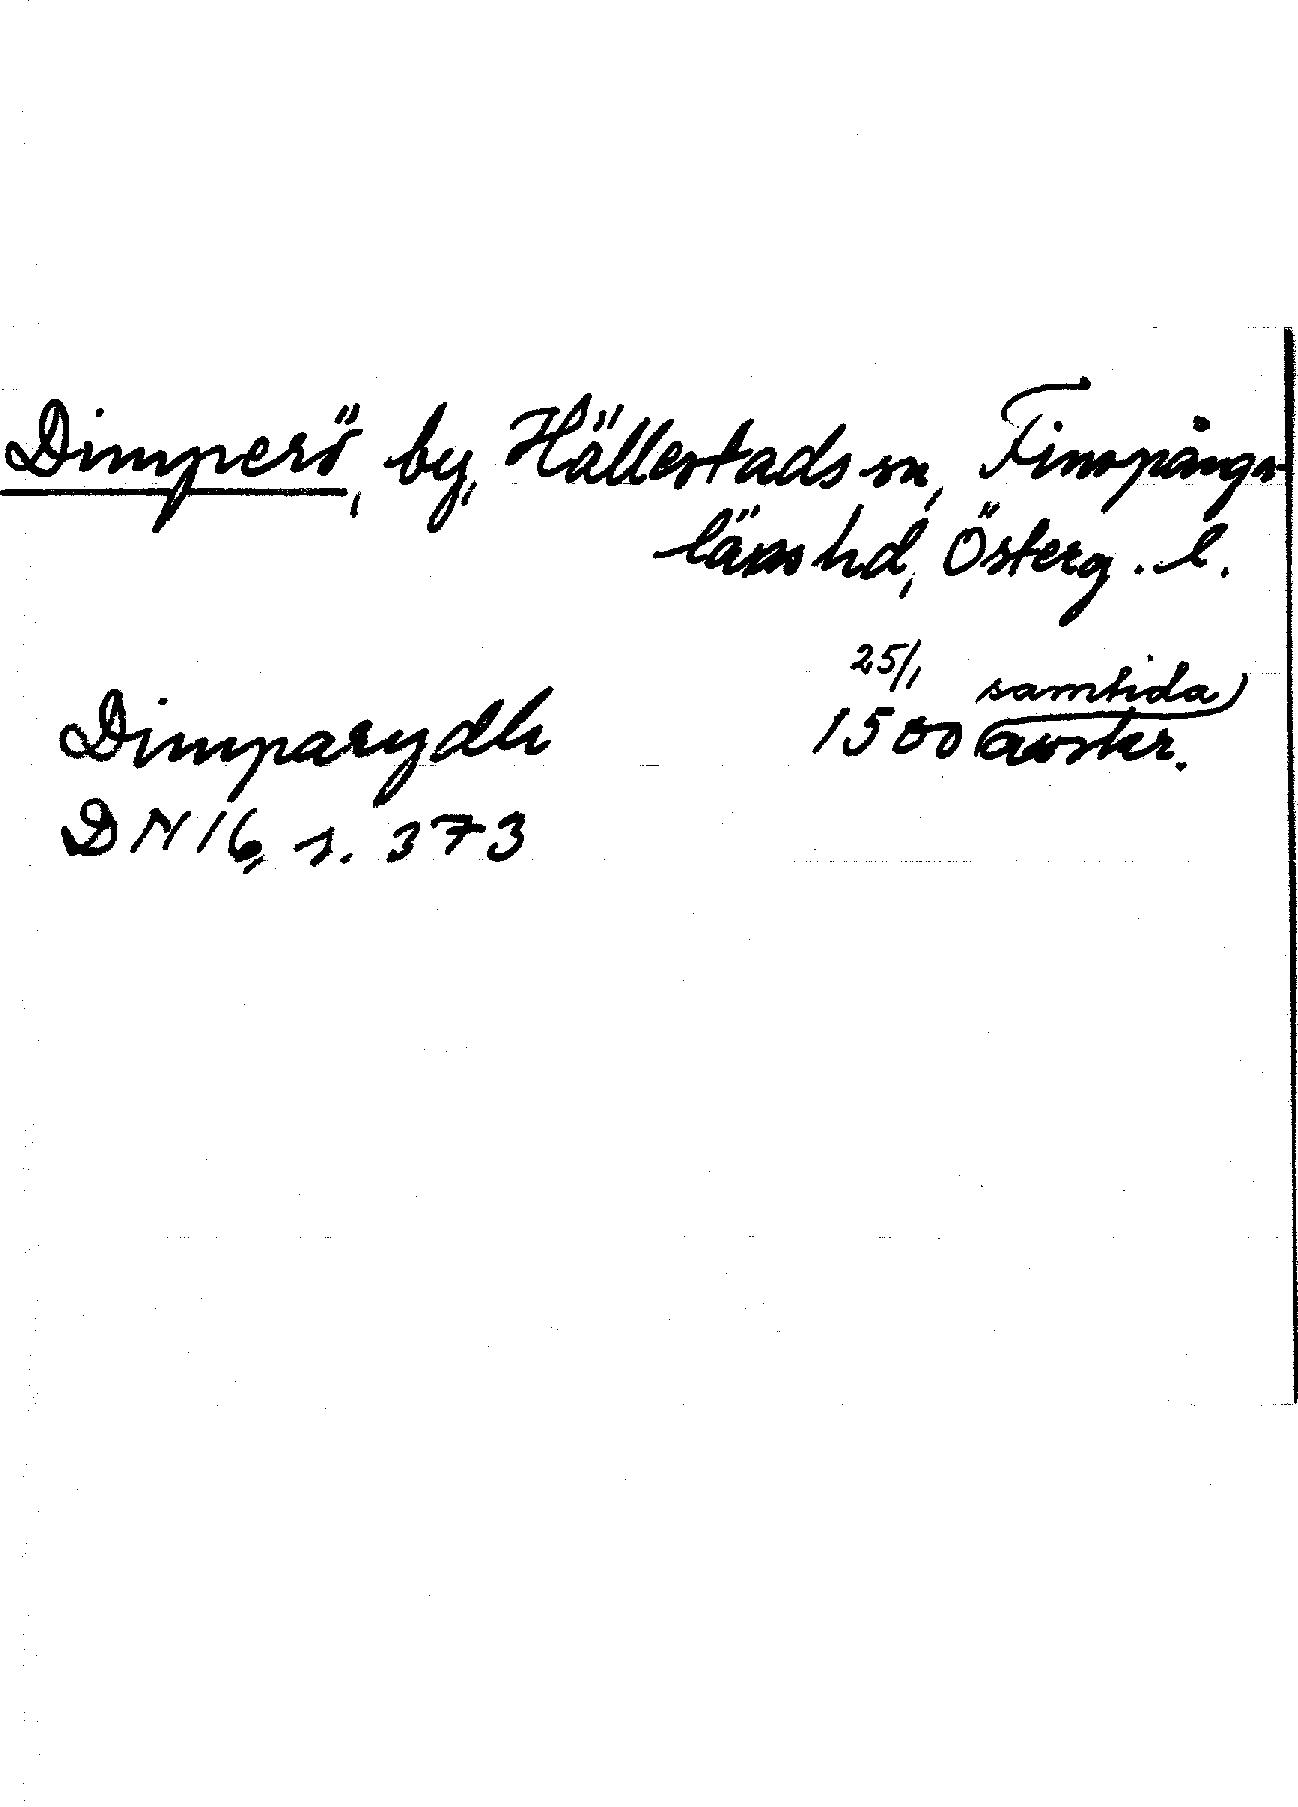 Dimperö, by, Hällestads sn, Finspångs-
läns hd, Österg. l.
25/1 samtida
Dimparydh 1500 avskr.
DN 16, s. 373